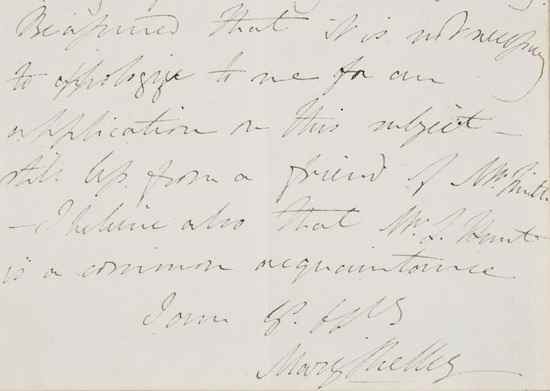 Be assured that it is not necessary
to appologize to me for an
application on this subject –
still less from a friend of Mr. Smith
– I believe also that Mr. L. Hunt
is a common acquaintance
I am Yr. Ob
Mary Shelley